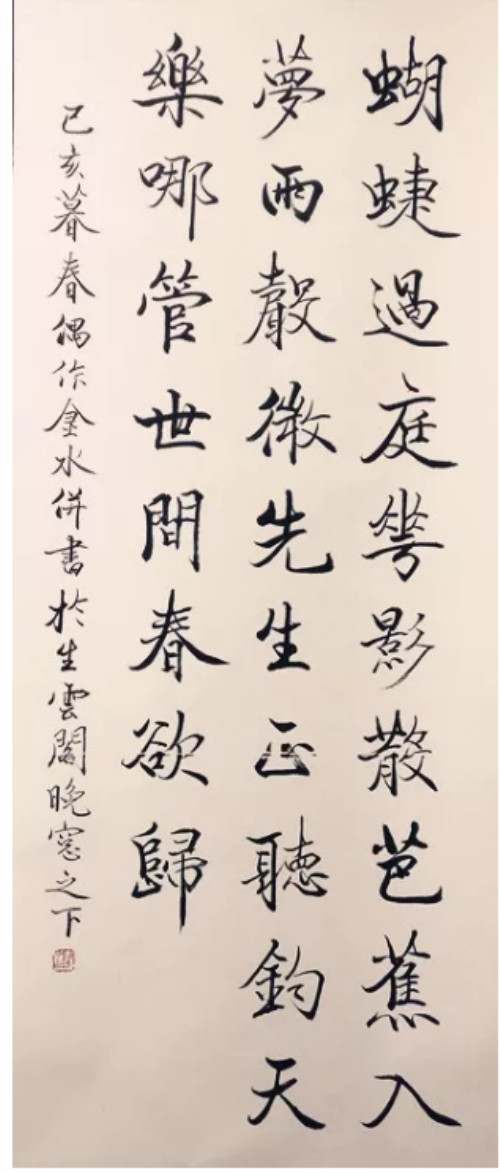 蝴蜨過庭蕚影散芭蕉入
夢雨聲微先生正聽鈞天
樂哪管世間春欲歸
己亥暮春偶作金水併書於生雲閣晚窓之下